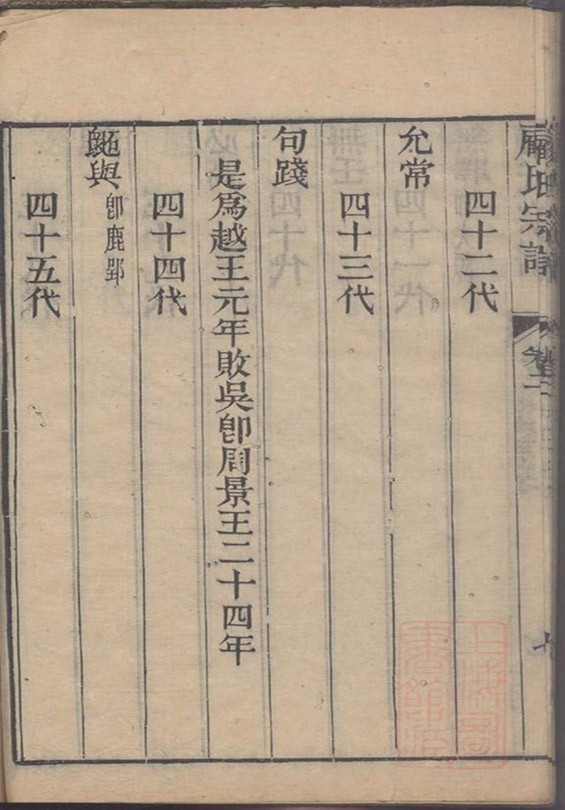 氏宗譜
四十二代
允常
四十三代
句踐
是爲越王元年敗吳卽周景王二十四年
四十四代
鼫與卽鹿郢
四十五代